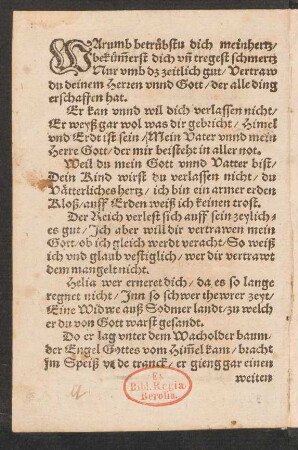 WArumb betrübstu dich mein hertz/
bekům̃erst dich vñ tregest schmertz
Nur vmb dz zeitlich gut/ Vertraw
du deinem Herzen vnnd Gott/ der alle ding
erschaffen hat.
Er kan vnnd wil dich verlassen nicht/
Er weyß gar wol was dir gebricht/ Himel
vnd Erdt ist sein/ Mein Vater vnnd mein
Herre Gott/ der mir beisteht in aller not.
Weil du mein Gott vnnd Vatter bist/
Dein Kind wirst du verlassen nicht/ du
Vätterliches hertz/ ich bin ein armer erden
Kloß/ auff Erden weiß ich keinen trost.
Der Reich verlest sich auff sein zeylich-
es gut/ Ich aber will dir vertrawen mein
Gott/ ob ich gleich werdt veracht/ So weiß
ich vnd glaub vestiglich/ wer dir vertrawt
dem mangelt nicht.
Helia wer erneret dich/ da es so lange
regnet nicht/ Inn so schwer thewrer zeyt/
Eine Widwe auß Sodmer landt/ zu welch
er du von Gott warst gesandt.
Do er lag vnter dem Wacholder baum/
der Engel Gottes vom Him̃el kam/ bracht
Im Speiß vñ de tranck/ er gieng gar einen
weiten
Ex
Bibl. Regia
Berolin.